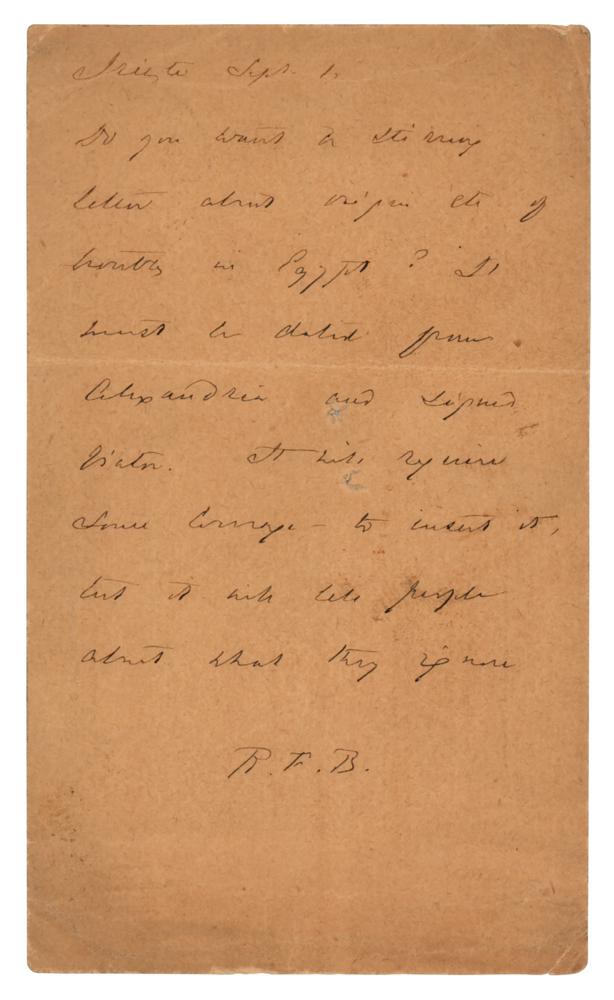 Trieste Sept. 1.
Do you want a stirring
letter about origin etc of
troubles in Egypt? It
must be dated from
Alexandria and signed
Viator. It will require
some courage - to insert it,
but it will tell people
about what they ignore
R.F.B.